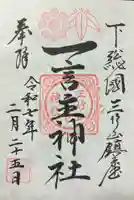 下総國三竹山鎮座
一言主神社
奉拝
令和七年
二月二十五日